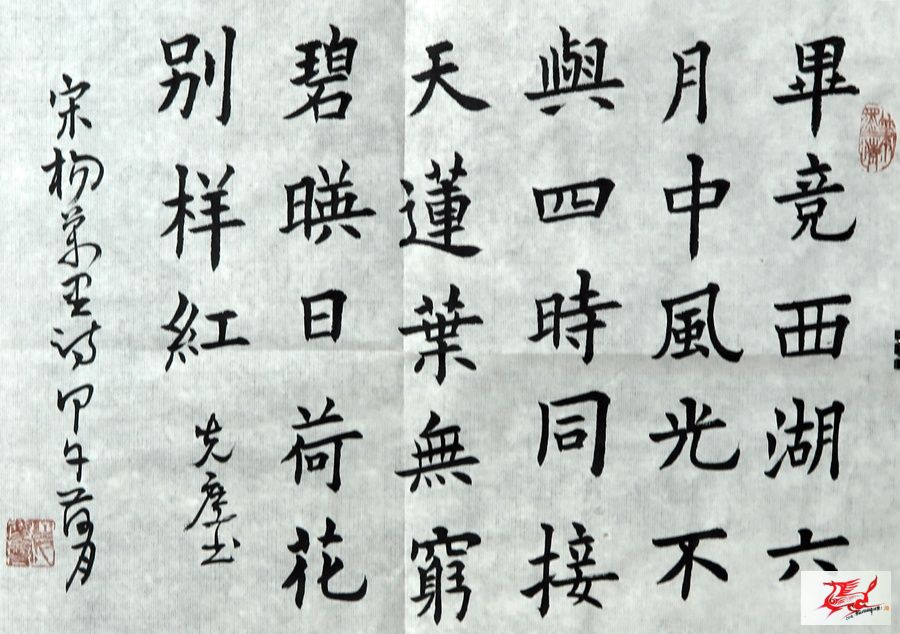 畢竟西湖六
月中風光不
與四時同接
天蓮葉無窮
碧暎日荷花
别样紅
先塵书
宋杨萬里诗甲午荷月